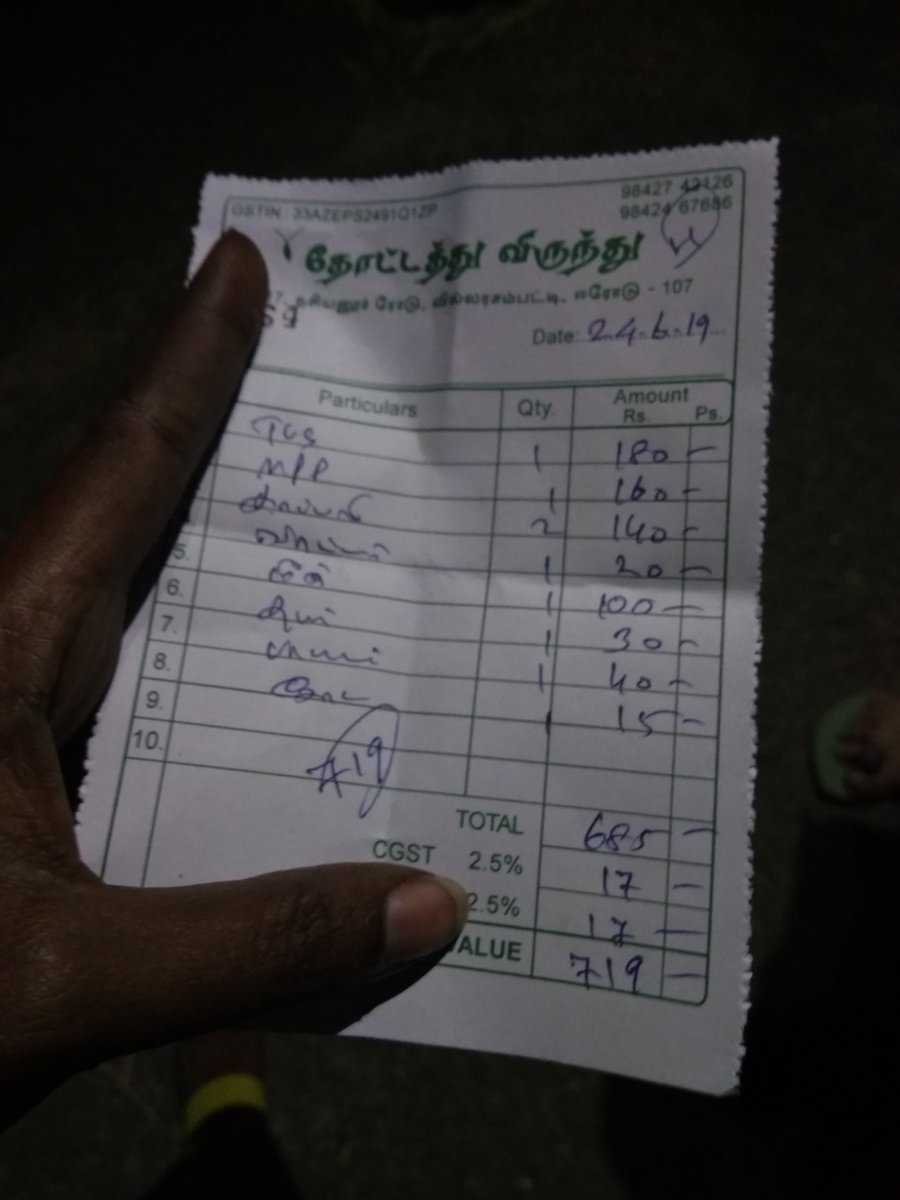 GSTIN : 33AZEPS2491Q1ZP
98427 42126
98424 67686
தோட்டத்து விருந்து
நசியனூர் ரோடு, வில்லரசம்பட்டி, ஈரோடு - 107
Date: 24.6.19
Particulars Qty. Amount
Rs. Ps.
1 180 -
MPP 1 160 -
2 140 -
1 20 -
5. 1 100 -
6. 1 30 -
7. 1 40 -
8. 1 15 -
9.
10.
A19
TOTAL 685 -
CGST 2.5% 17 -
2.5% 17 -
VALUE 719 -